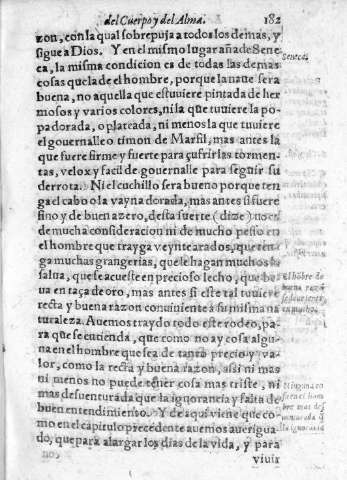 del Cuerpo y del Alma. 182
zon, con la qual sobrepuja a todos los demas, y
sigue a Dios. Y en el mismo lugar añade Sene
ca, la misma condicion es de todas las demas
cosas que la de el hombre, porque la naue sera
buena, no aquella que estuuiere pintada de her
mosos y varios colores, ni la que tuuiere la po
pa dorada, o plateada, ni menos la que tuuiere
el gouernalle o timon de Marfil, mas antes la
que fuere firme y fuerte para çufrir las tormen
tas, velox y facil de gouernalle para seguir su
derrota. Ni el cuchillo sera bueno porque ten
ga el cabo o la vayna dorada, mas antes si fuere
fino y de buen azero, desta suerte (dize) no es
de mucha consideracion ni de mucho pesso en
el hombre que trayga veynte arados, que ten
ga muchas grangerias, que le hagan muchos la
salua, que se acueste en precioso lecho, que be
ua en taça de oro, mas antes si este tal tuuiere
recta y buena razon conuiniente à su misma na
turaleza. Auemos traydo todo este rodeo, pa
ra que se entienda, que como no ay cosa algu
na en el hombre que sea de tanto precio y va
lor, como la recta y buena razon, assi ni mas
ni menos no puede tener cosa mas triste, ni
mas desuenturada que la ignorancia y falta de
buen entendimiento. Y de aqui viene que co
mo en el capitulo precedente auemos aueriguado,
que para alargar los dias de la vida, y para
viuir
Seneca.
El hõbre de
buena razõ
Ninguna co
sa en el hom
bre mas des
uenturada q̃
la ignorãcia